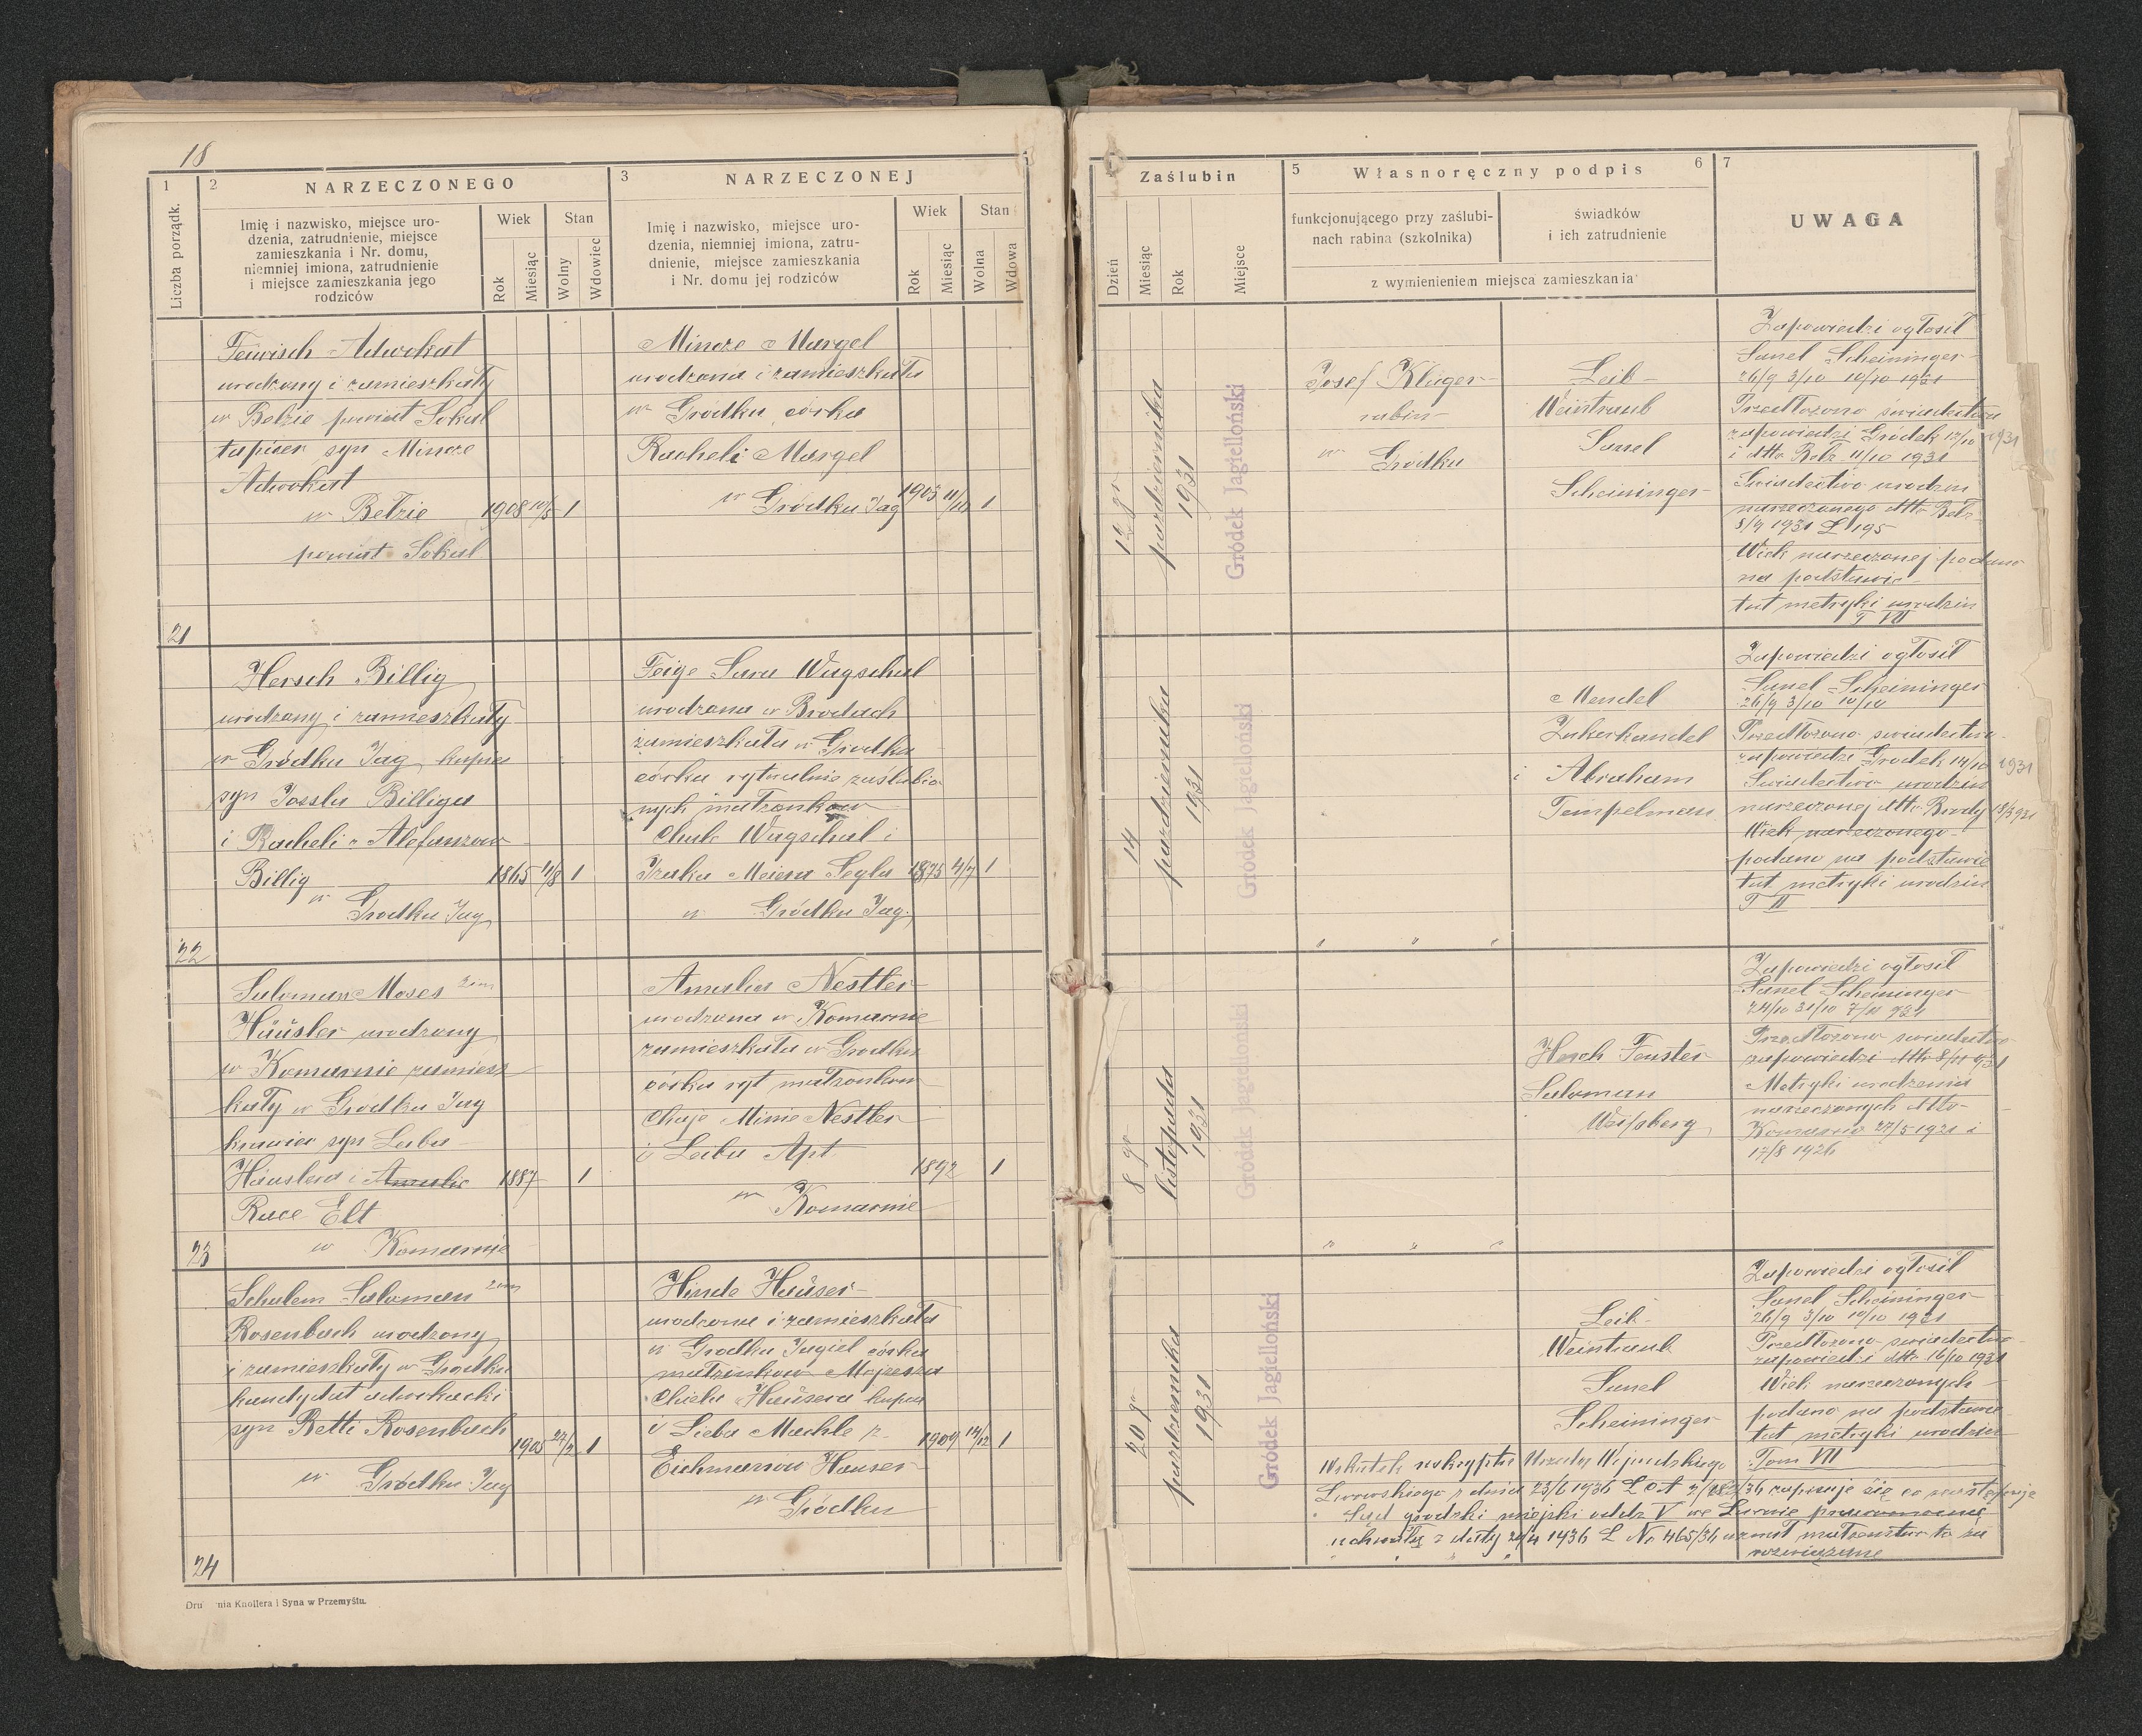 18
1
Liczba porządk.
2
NARZECZONEGO
Imię i nazwisko, miejsce uro-
dzenia, zatrudnienie, miejsce
zamieszkania i Nr. domu,
niemniej imiona, zatrudnienie
i miejsce zamieszkania jego
rodziców
Wiek
Rok
Miesiąc
Stan
Wolny
Wdowiec
3
NARZECZONEJ
Imię i nazwisko, miejsce uro-
dzenia, niemniej imiona, zatru-
dnienie, miejsce zamieszkania
i Nr. domu jej rodziców
Wiek
Rok
Miesiąc
Stan
Wolna
Wdowa
Zaślubin
Dzień
Miesiąc
Rok
Miejsce
5
Własnoręczny podpis
6
funkcjonującego przy zaślubi-
nach rabina (szkolnika)
świadków
i ich zatrudnienie
z wymienieniem miejsca zamieszkania
7
UWAGA
21
Feiwisch Adwokat
urodzony i zamieszkały
w Bełzie powiat Sokal
tapicer syn Mincze
Adwokat
w Bełzie
powiat Sokal
1908 10/5 1
Mincze Margel
urodzona i zamieszkała
w Gródku córka
Racheli Margel
w Gródku Jag
1905 11/10 1
12 go
października
1931
Gródek Jagielloński
Josef Klüger
rabin
w Gródku
Leib
Weintraub
Sanel
Scheininger
Zapowiedzi ogłosił
Sanel Scheininger
26/9 3/10 10/10 1931
Przedłożono świadectwa
zapowiedzi Gródek 12/10 1931
i dtto Bełz 11/10 1931
Świadectwo urodzin
narzeczonego dtto Bełz
8/9 1931 L 195
Wiek narzeczonej podano
na podstawie
tut metryki urodzin
T VII
22
Hersch Billig
urodzony i zamieszkały
w Gródku Jag kupiec
syn Jossla Billiga
i Racheli
Billig
w
Gródku Jag
1865 1
Feige Sara Wagschal
urodzona w Brodach
zamieszkała w Gródku
córka rytualnie zaślubio
nych małżonków
Wagschal i
Izaka Meiera Segla
w Gródku Jag.
1875 4/7 1
14
października
1931
Gródek Jagielloński
" " "
Mendel
Zukerkandel
i Abraham
Tempelman
Zapowiedzi ogłosił
Sanel Scheininger
26/9 3/10 10/10
Przedłożono świadectwo
zapowiedzi Gródek 14/10 1931
Świadectwo urodzin
narzeczonej dtto Brody
Wiek narzeczonego
podano na podstawie
tut metryki urodzin
T II
23
Salomon Moses 2im
Häusler urodzony
w Komarnie zamiesz
kały w Gródku Jag
krawiec syn Leiba
Häuslera i Amalie
Race Elt
w Komarnie
1887 1
Amalia Nestler
urodzona w Komarnie
zamieszkała w Gródku
córka ryt małżonków
Chaje Minie Nestler
i Leiba Apt
w
Komarnie
1892 1
8 go
listopada
1931
Gródek Jagielloński
" " "
Hersch Fenster
Salomon
Weissberg
Zapowiedzi ogłosił
Sanel Scheininger
24/10 31/10 7/11 931
Przedłożono świadectwo
zapowiedzi dtto 8/11 931
Metryki urodzenia
narzeczonych dtto
Komarno 27/5 1931 i
17/8 1926
24
Schulem Salomon 2im
Rosenbach urodzony
i zamieszkały w Gródku
kandydat adwokacki
syn Betti Rosenbach
w
Gródku Jag
1905 27/2 1
Hinde Haüser
urodzona i zamieszkała
w Gródku Jagiel córka
małżonków Mojżesza
Chiela Haüsera kupca
i Lieba Machle z
Eichmanów Hauser
w Gródku
1909 14/12 1
20 go
października
1931
Gródek Jagielloński
Leib
Weintraub
Sanel
Scheininger
Zapowiedzi ogłosił
Sanel Scheininger
26/9 3/10 10/10 1931
Przedłożono świadectwo
zapowiedzi dtto 16/10 1931
Wiek narzeczonych
podano na podstawie
tut metryki urodzin
Tom VII
Wskutek reskryptu Urzędu Wojewódzkiego
Lwowskiego z dnia 23/6 1936 zapisuje się co następuje
Sąd grodzki miejski oddz V we Lwowie prawomocną
uchwałą z daty 1936 L Nc 465/36 uznał małżeństwo to za
rozwiązane
nia Knollera i Syna w Przemyślu.